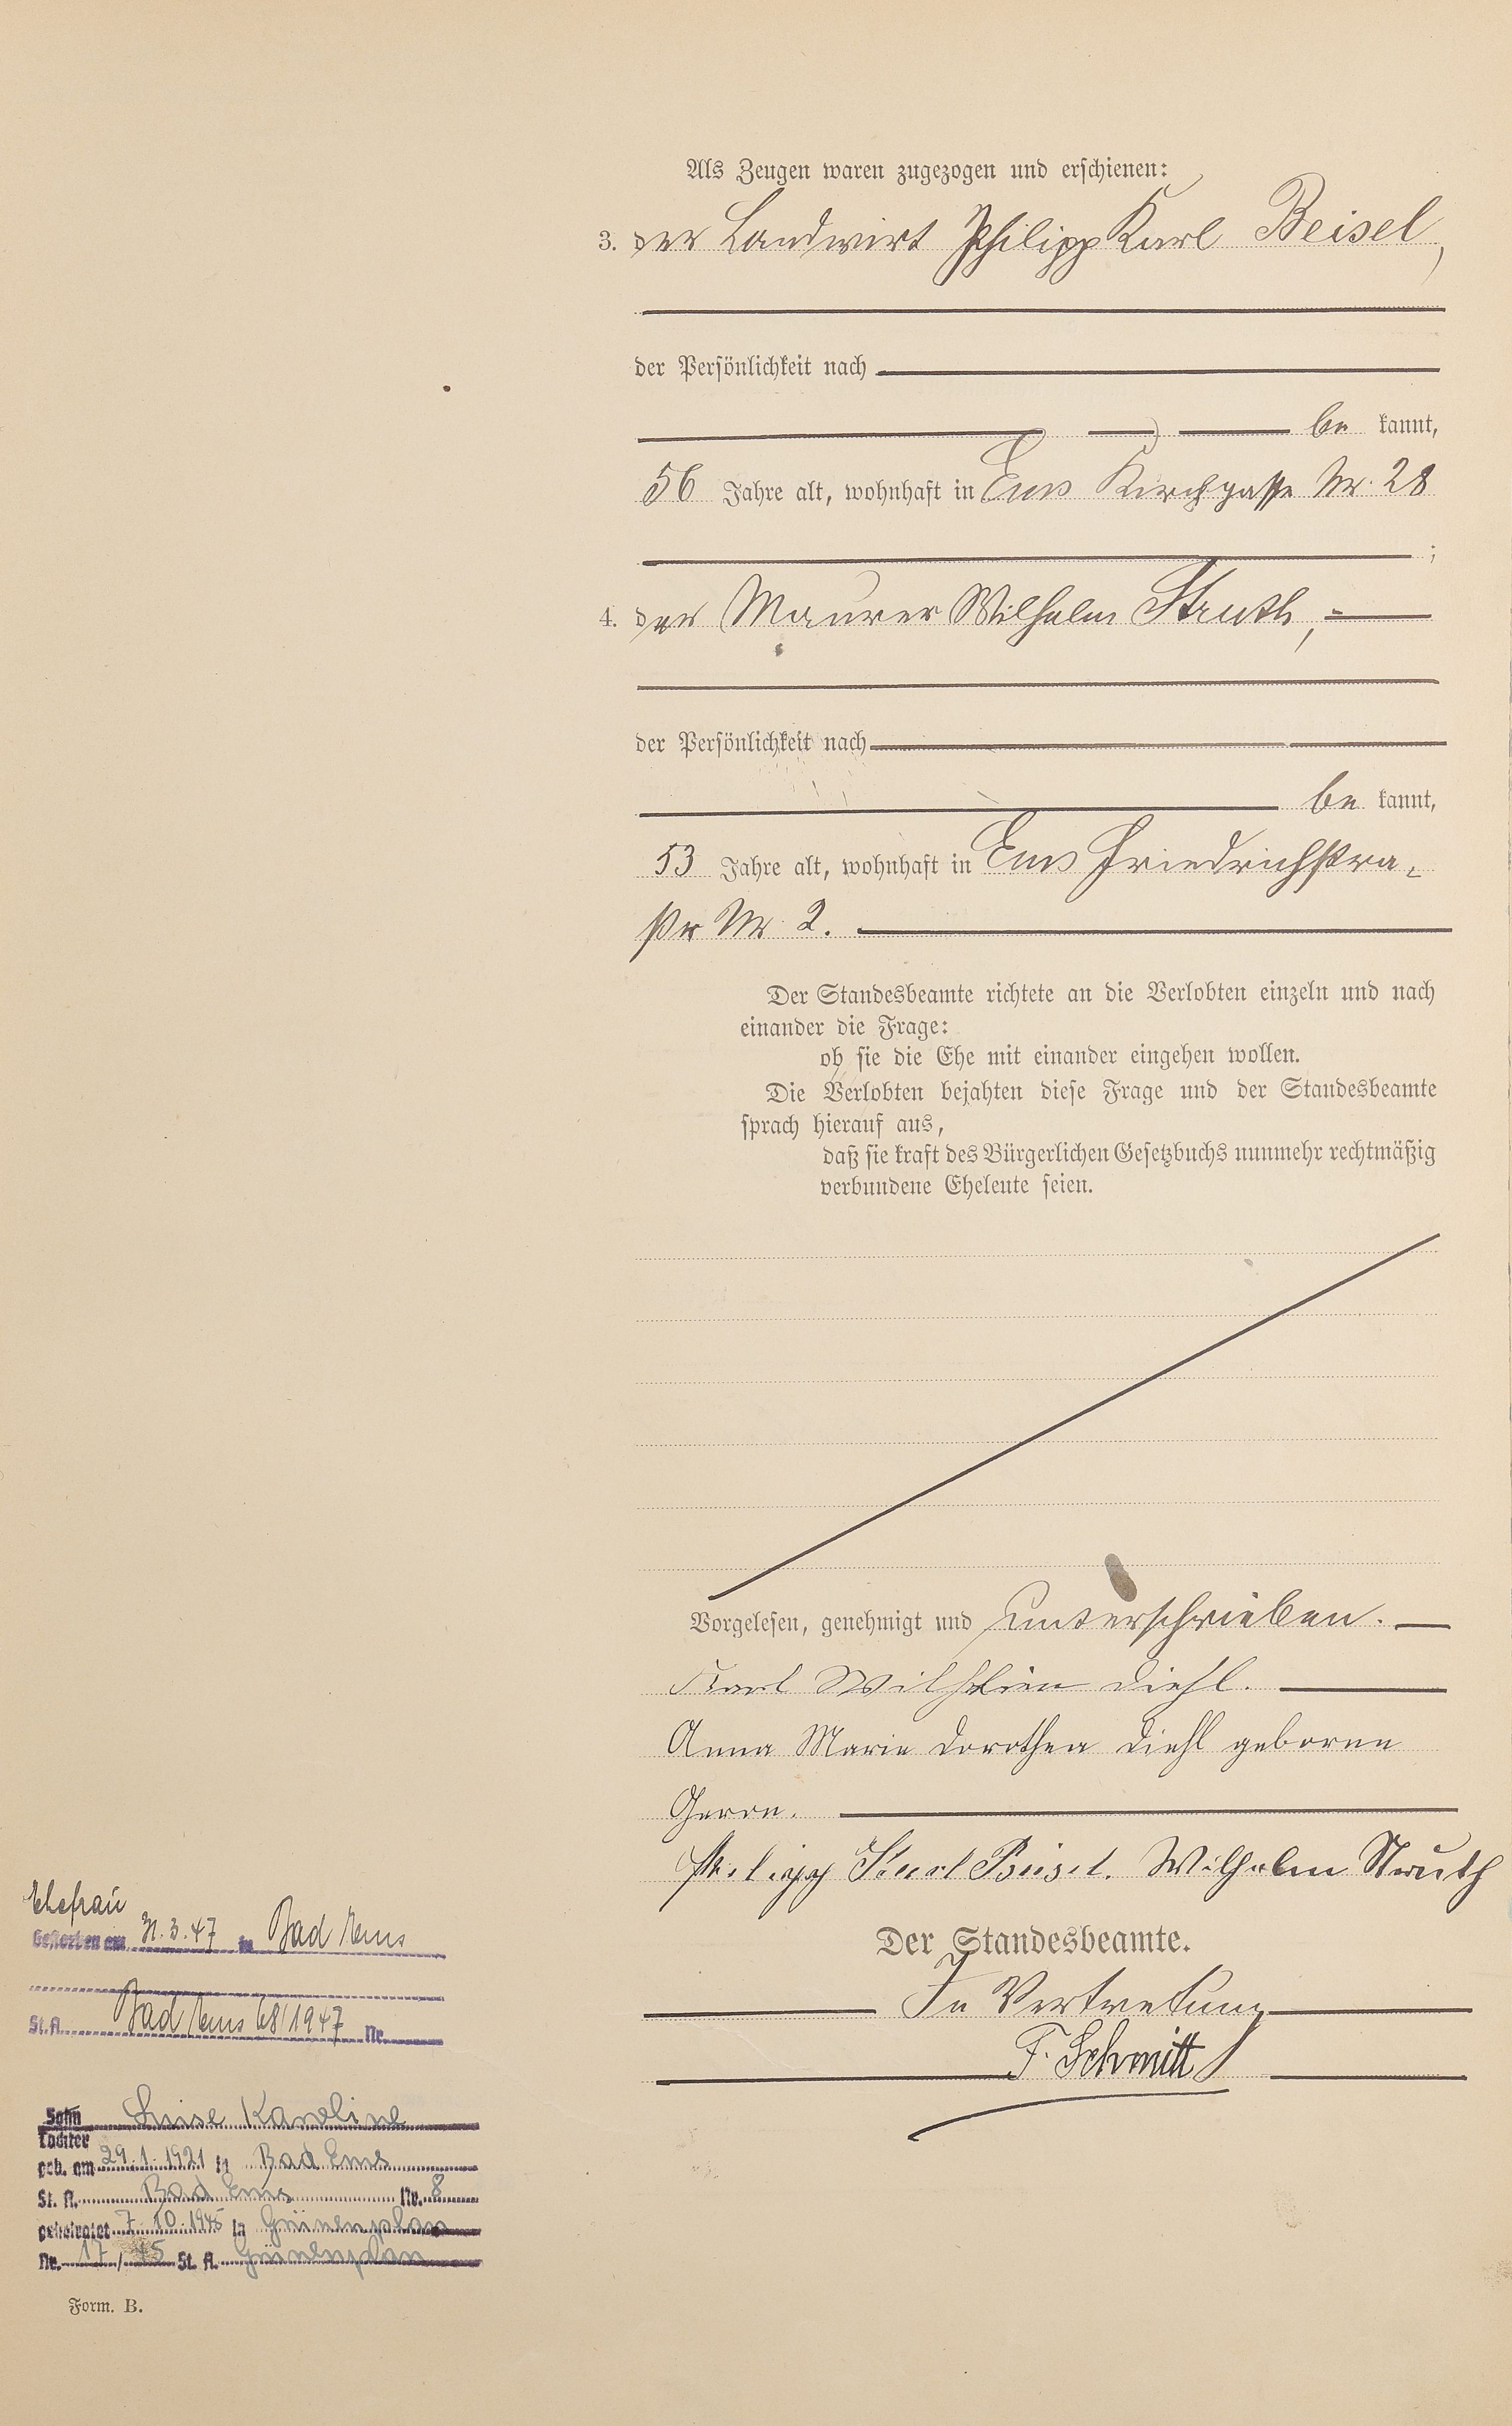 Als Zeugen waren zugezogen und erschienen:
3. der Landwirt Philipp Karl Beisel,
der Persönlichkeit nach
be kannt,
56 Jahre alt, wohnhaft in Ems Kirchgasse Nr. 28
;
4. der Maurer Wilhelm Struth,
der Persönlichkeit nach
be kannt,
53 Jahre alt, wohnhaft in Ems Friedrichstra-
ße Nr 2.
Der Standesbeamte richtete an die Verlobten einzeln und nach
einander die Frage:
ob sie die Ehe mit einander eingehen wollen.
Die Verlobten bejahten diese Frage und der Standesbeamte
sprach hierauf aus,
daß sie kraft des Bürgerlichen Gesetzbuchs nunmehr rechtmäßig
verbundene Eheleute seien.
Vorgelesen, genehmigt und unterschrieben.
Karl Wilhelm Diehl.
Anna Marie Dorothea Diehl geborne
Philipp Karl Beisel. Wilhelm Struth
Der Standesbeamte.
In Vertretung
F. Schmitt
Ehefrau
Gestorben am 31.3.47 in Bad Ems
St.A. Bad Ems 68/1947 Nr.
Sohn Luise Karoline
Tochter
geb. am 29.1.1921 in Bad Ems
St. A. Bad Ems Nr. 8
geheiratet 7.10.1945 in Grünenplan
Nr. 17/45 St. A. Grünenplan
Form. B.